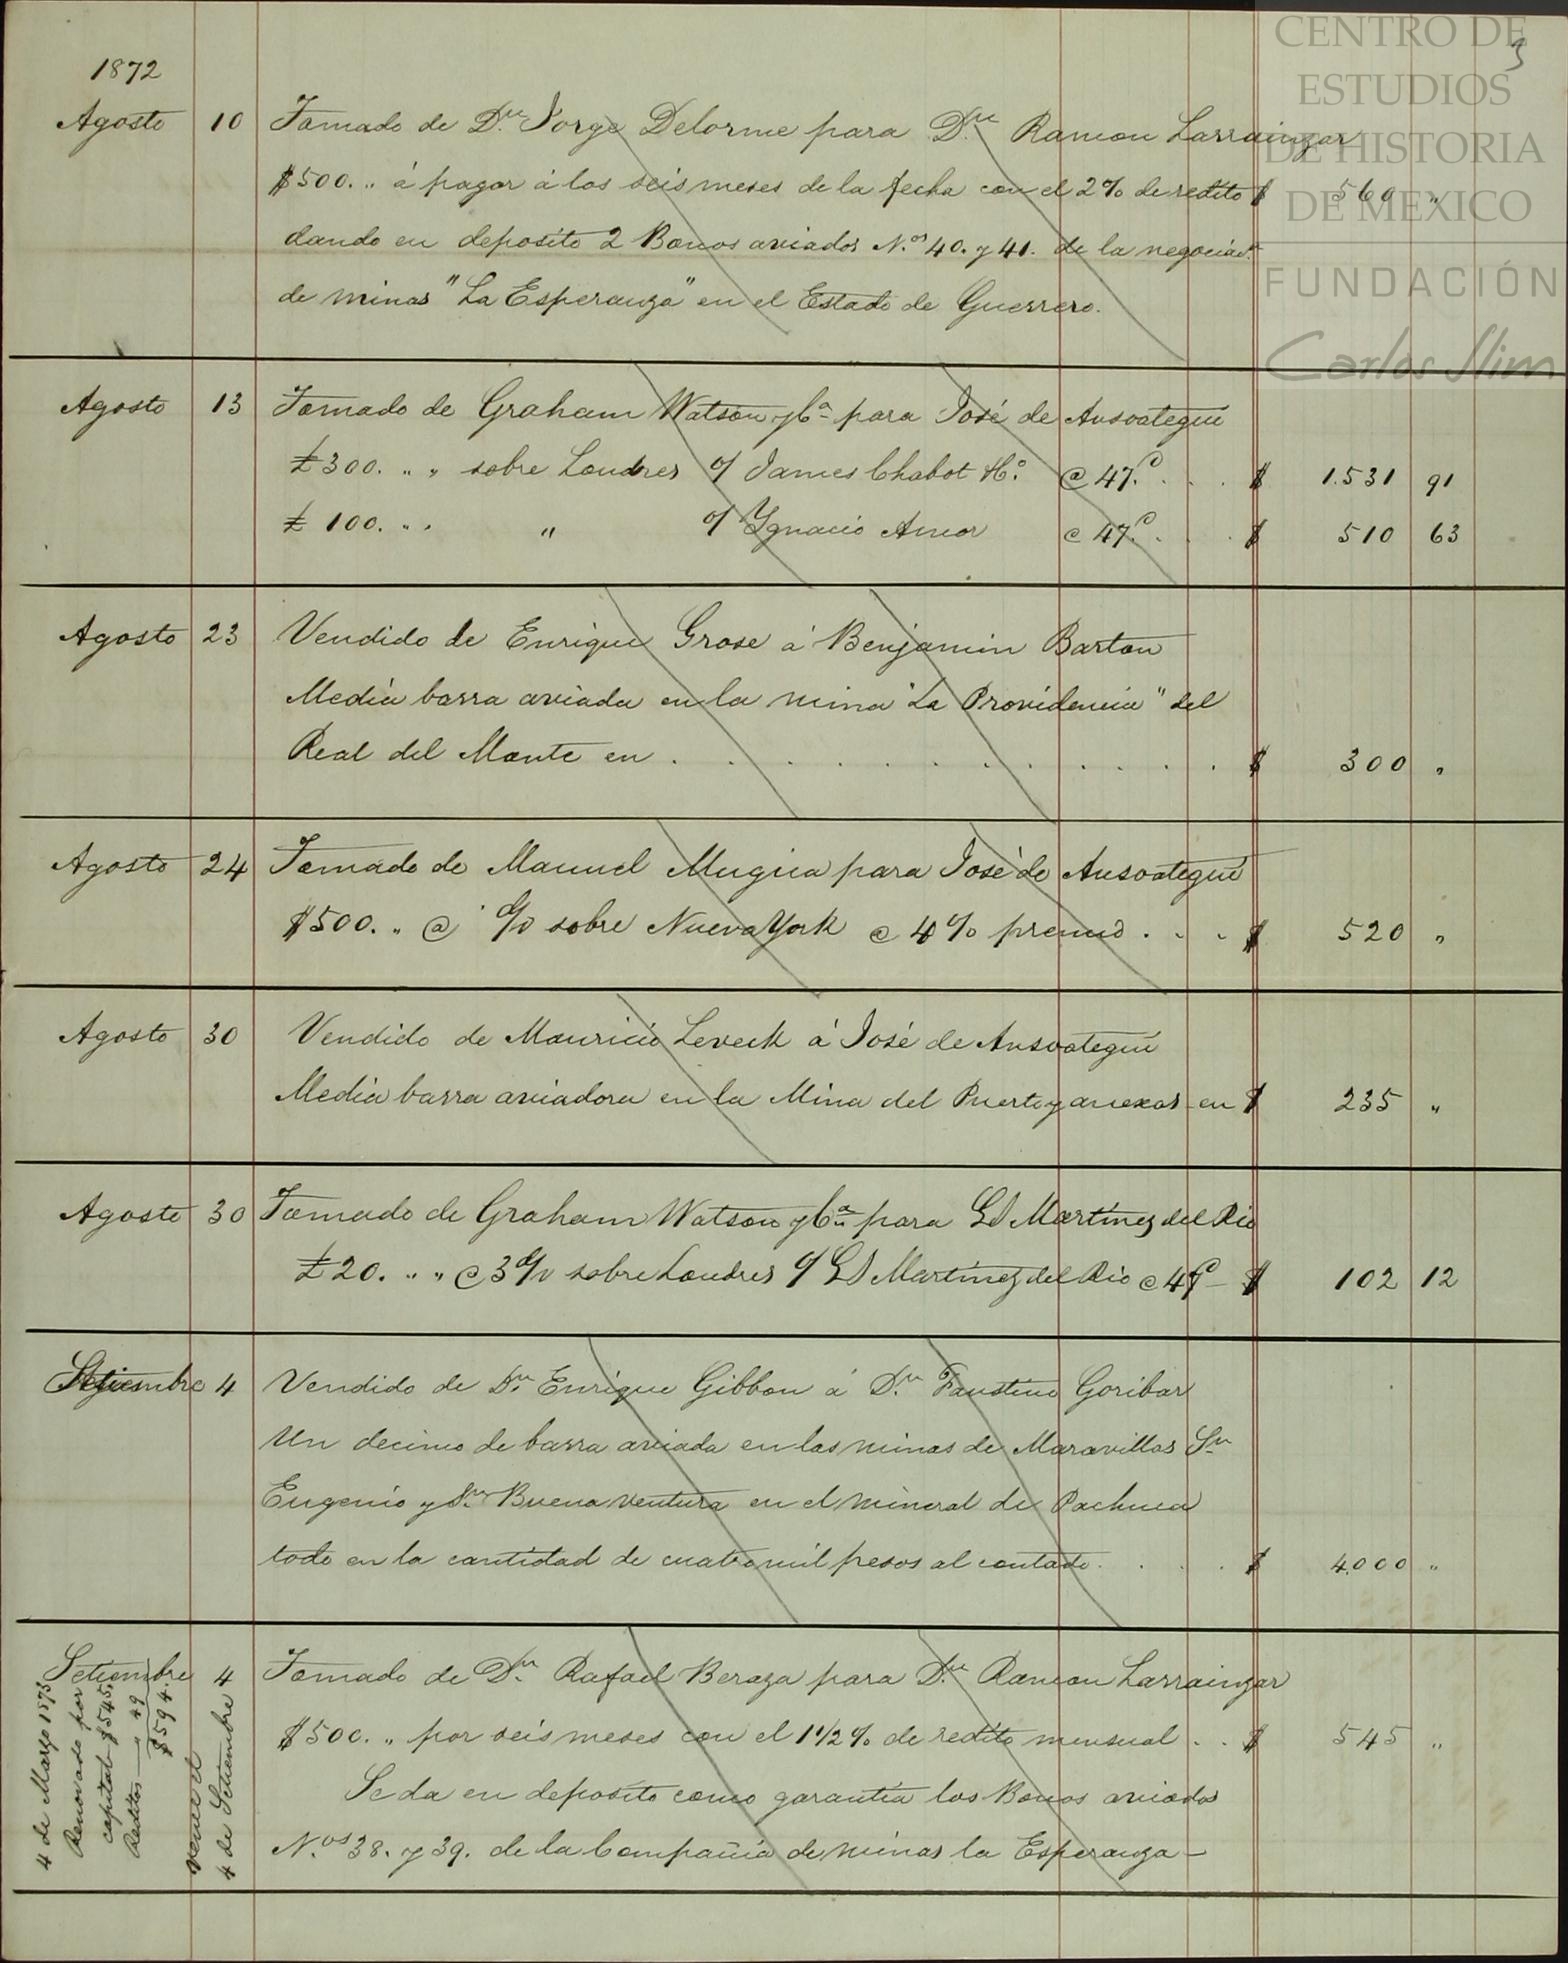 CENTRO DE
ESTUDIOS
DE HISTORIA
DE MEXICO
FUNDACIÓN
Carlos Slim
3
1872
Agosto 10 Tomado de Dn. Jorge Delorme para Dn. Ramon Larrainzar
$500. „ á pagar á los seis meses de la fecha con el 2% de redito $ 560 „
dando en deposito 2 Bonos aviados N.os 40. y 41. de la negociacn.
de minas "La Esperanza" en el Estado de Guerrero.
Agosto 13 Tomado de Graham Watson y Ca. para José de Ansoategui
£300. „ „ sobre Londres o/ James Chabot Ho. @ 47.P . . . $ 1.531 91
£ 100. „ „ „ o/ Ygnacio Amor @ 47.P . . . $ 510 63
Agosto 23 Vendido de Enrique Grose á Benjamin Barton
Media barra aviada en la mina "La Providencia" del
Real del Monte en . . . . . . . . . . . $ 300 „
Agosto 24 Tomado de Manuel Mugica para José de Ansoategui
$500. „ @ d/v sobre Nueva York @ 4% premio . . . $ 520 „
Agosto 30 Vendido de Mauricio Leveck á José de Ansoategui
Media barra aviadora en la Mina del Puerto y anexas en $ 235 „
Agosto 30 Tomado de Graham Watson y Ca. para GS Martinez del Rio
£20. „ „ @ 3 d/v sobre Londres o/ GS Martinez del Rio @ 47P $ 102 12
Setiembre 4 Vendido de Dn. Enrique Gibbon á Dn. Faustino Goribar
Un decimo de barra aviada en las minas de Maravillas Sn
Eugenio y Sn. Buena ventura en el mineral de Pachuca
todo en la cantidad de cuatro mil pesos al contado . . . . $ 4.000 „
Setiembre 4 Tomado de Dn. Rafael Beraza para Dn. Ramon Larrainzar
$500. „ por seis meses con el 1 1/2% de redito mensual . . $ 545 „
Se da en deposito como garantia los Bonos aviados
N.os 38. y 39. de la Compañia de minas la Esperanza —
4 de Marzo 1873
Renovado por
capital $545.
Reditos — „ 49
$594.
vence el
4 de Setiembre